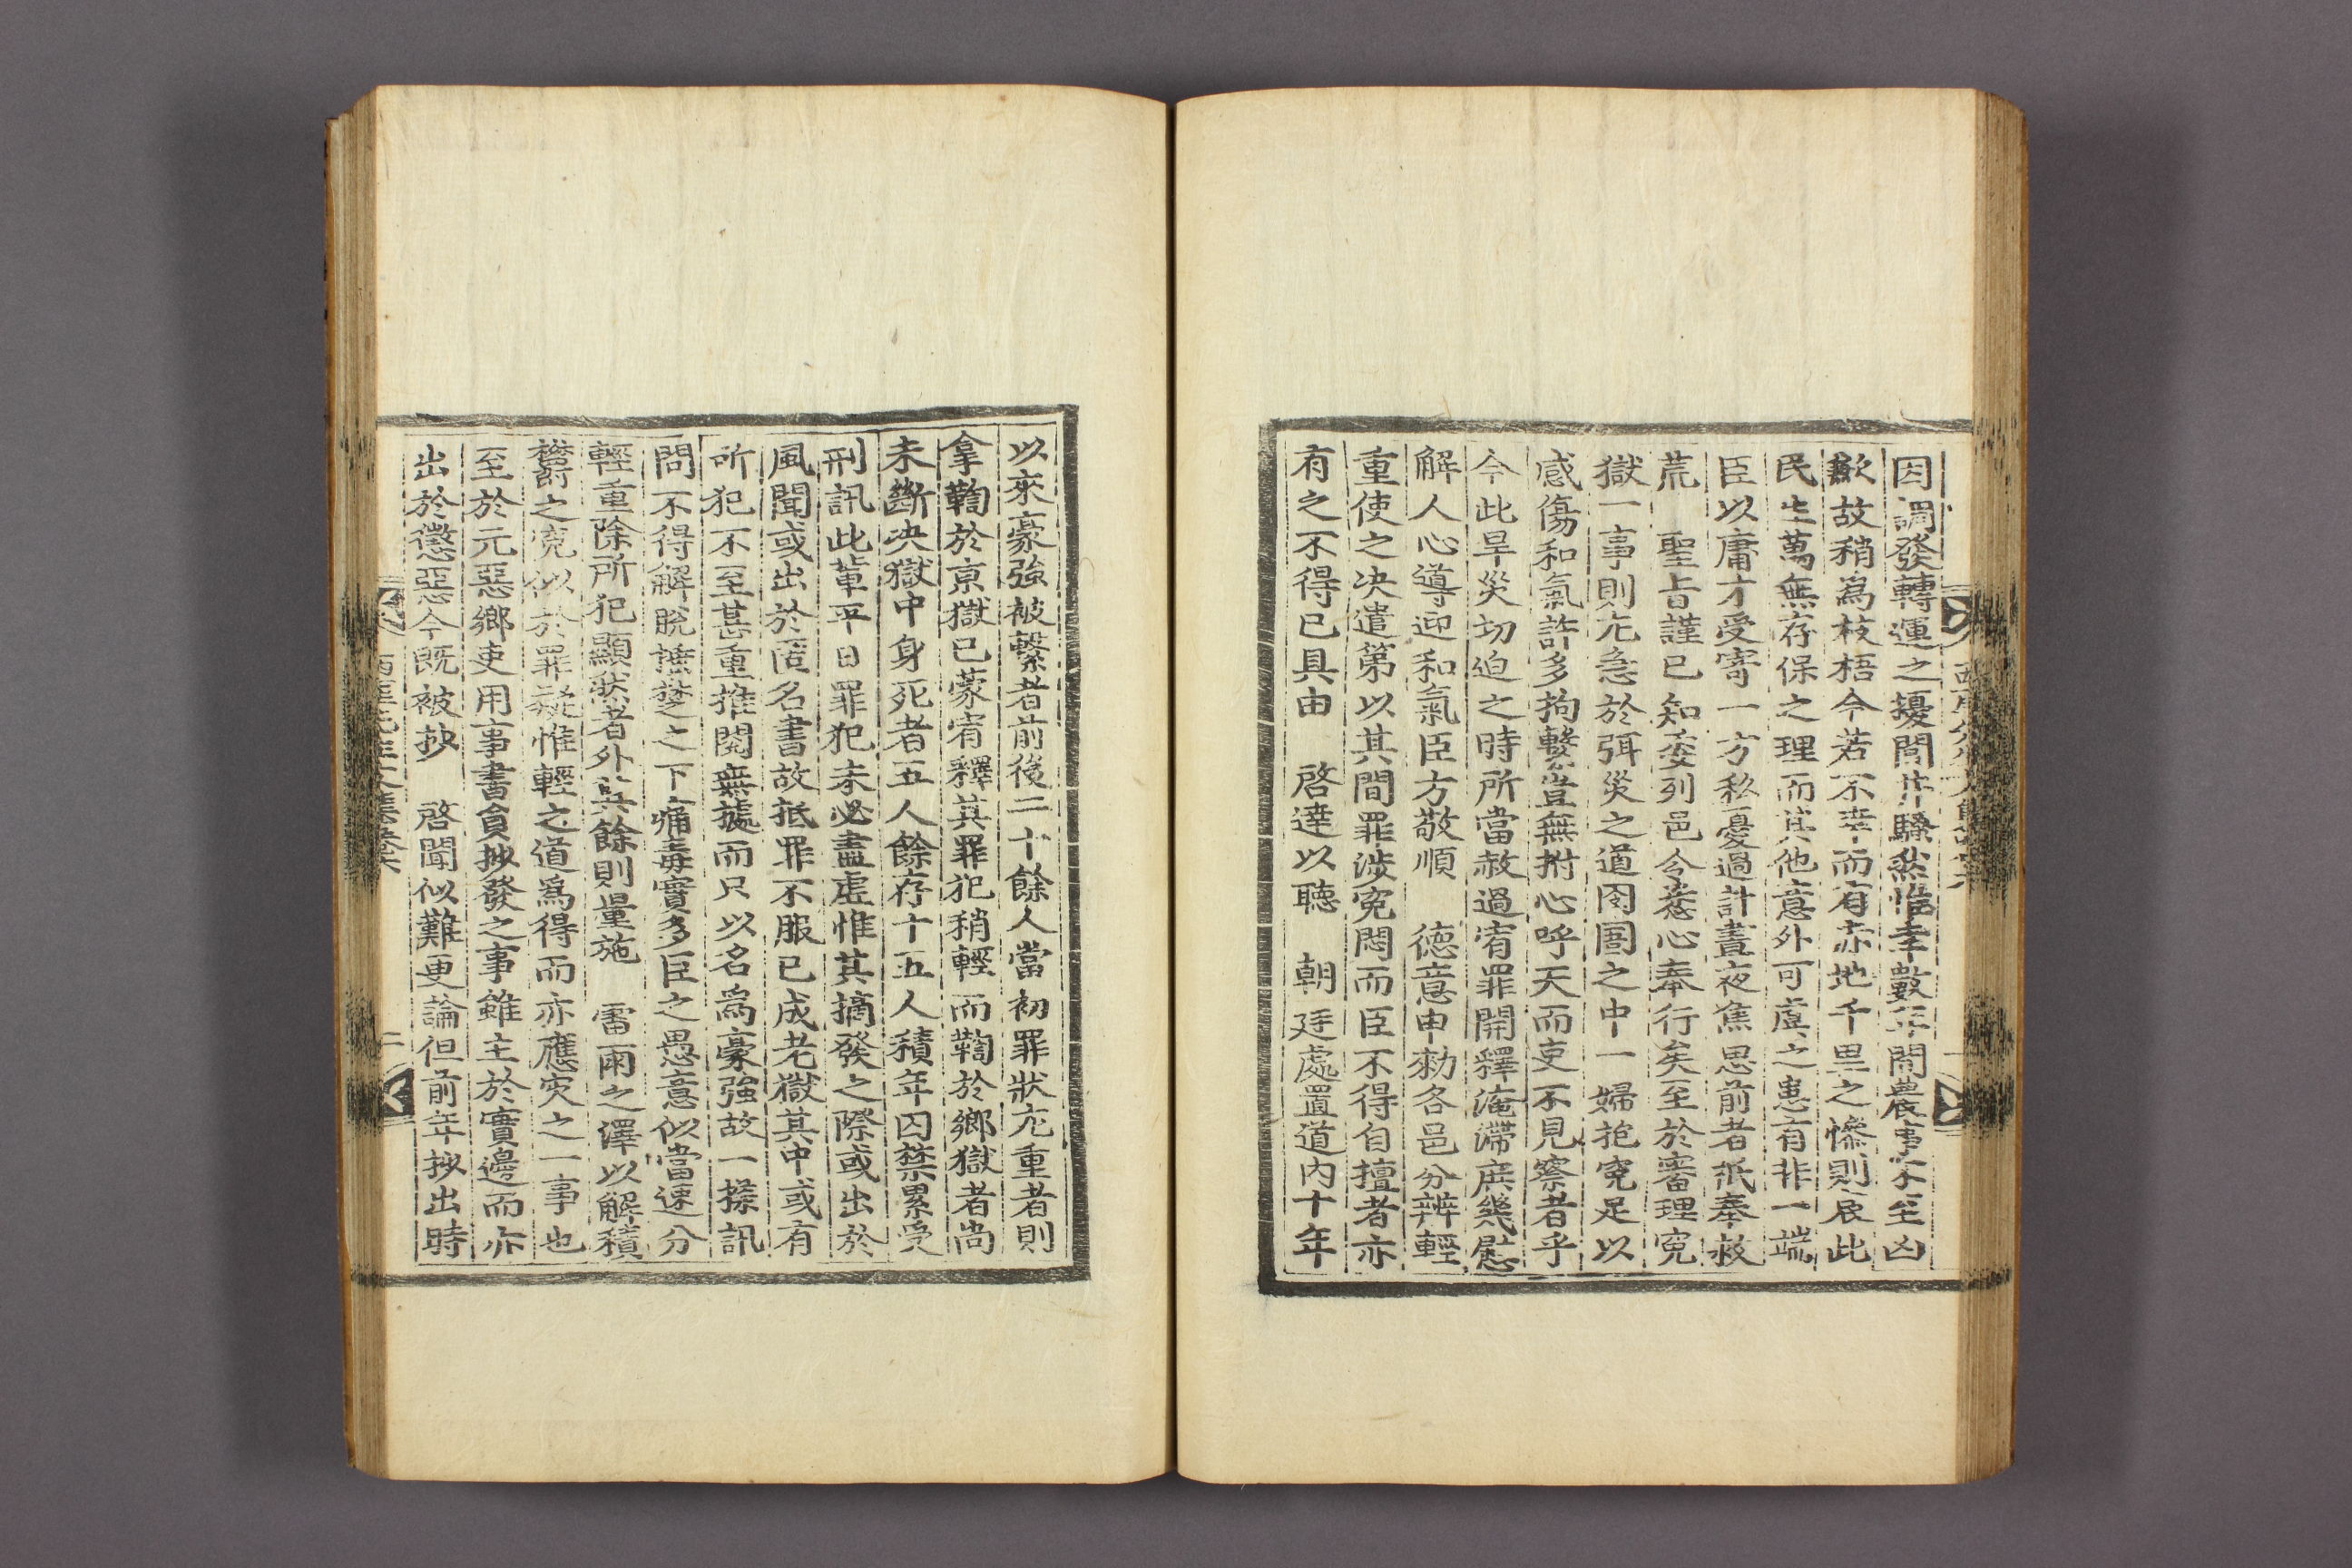 因調發轉運之擾閭井騷然惟幸數年間農事不至凶
歉故稍爲枝梧今若不幸而有赤地千里之慘則哀此
民生萬無存保之理而其他意外可虞之患有非一端
臣以庸才受寄一方私憂過計晝夜焦思前者祗奉救
荒 聖旨謹已知委列邑令悉心奉行矣至於審理冤
獄一事則尤急於弭災之道囹圄之中一婦抱冤足以
感傷和氣許多拘繫豈無拊心呼天而吏不見察者乎
今此旱災切迫之時所當赦過宥罪開釋淹滯庶幾慰
解人心導迎和氣臣方敬順 德意申勑各邑分辨輕
重使之决遣第以其間罪涉冤悶而臣不得自擅者亦
有之不得已具由 啓達以聽 朝廷處置道内十年
以來豪強被繫者前後二十餘人當初罪狀尤重者則
拿鞫於京獄已蒙宥釋其罪犯稍輕而鞫於鄉獄者尚
未斷决獄中身死者五人餘存十五人積年囚禁累受
刑訊此輩平日罪犯未必盡虛惟其摘發之際或出於
風聞或出於匿名書故抵罪不服已成老獄其中或有
所犯不至甚重推閱無據而只以名爲豪強故一㨾訊
問不得解脫譙楚之下痛毒實多臣之愚意似當速分
輕重除所犯顯然者外其餘則量施 雷雨之澤以解積
欝之冤似於罪疑惟輕之道爲得而亦應灾之一事也
至於元惡鄉吏用事書員抄發之事雖主於實邊而亦
出於懲惡今既被抄 啓聞似難更論但前年抄出時
二